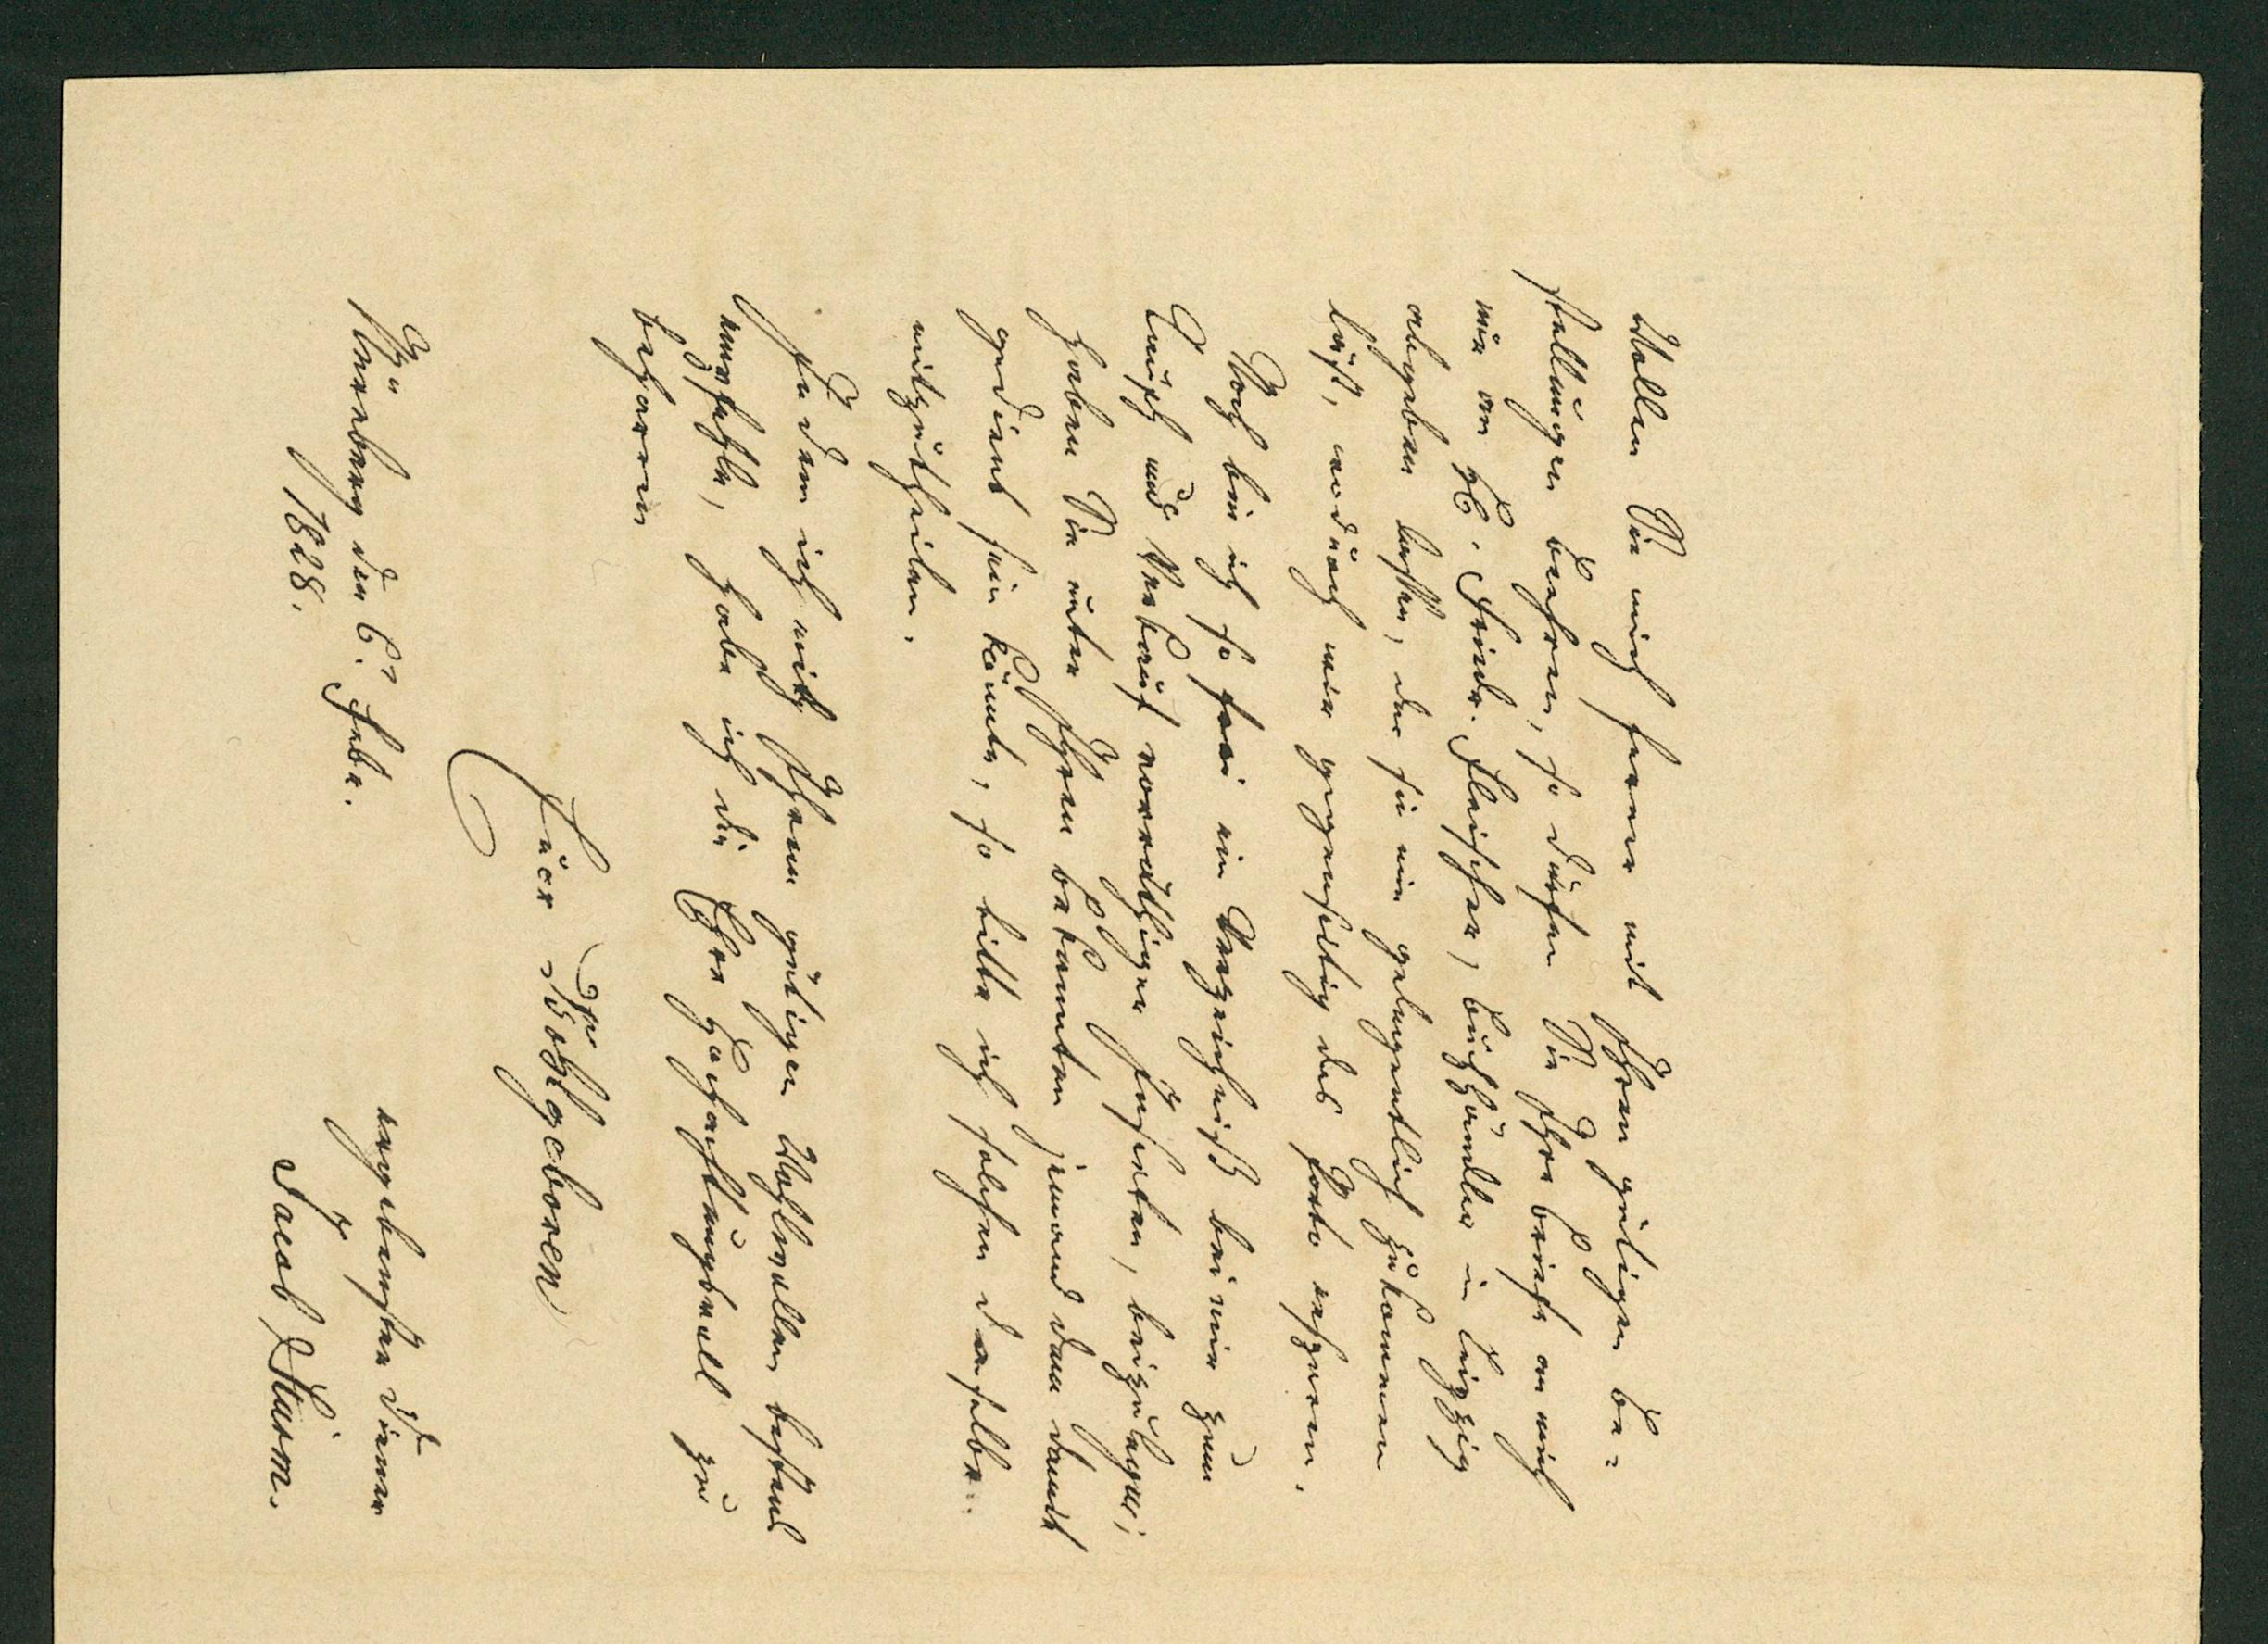 Wollen Sie mich ferner mit Ihren gütigen Be-
stellungen beehren, so dürfen Sie Ihre Briefe an mich
nur an H. Friedr. Fleischer, Buchhändler in Leipzig
abgeben lassen, der sie mir gelegentlich zukommen
läßt, wodurch wir gegenseitig das Porto ersparen.
Noch bin ich so frei ein Verzeichniß bei mir zum
Tausch und Verkauf vorräthiger Insecten, beizulegen;
haben Sie unter Ihren bekannten jemand dem damit
gedient sein könnte, so bitte ich solchen dasselbe
mitzutheilen.
In dem ich mich Ihrem gütigen Wohlwollen bestens
empfehle, habe ich die Ehre hochachtungsvoll zu
beharren
Euer Wohlgeboren
Nürnberg den 6. Febr.
1828.
ergebenster Diener
Jacob Sturm.